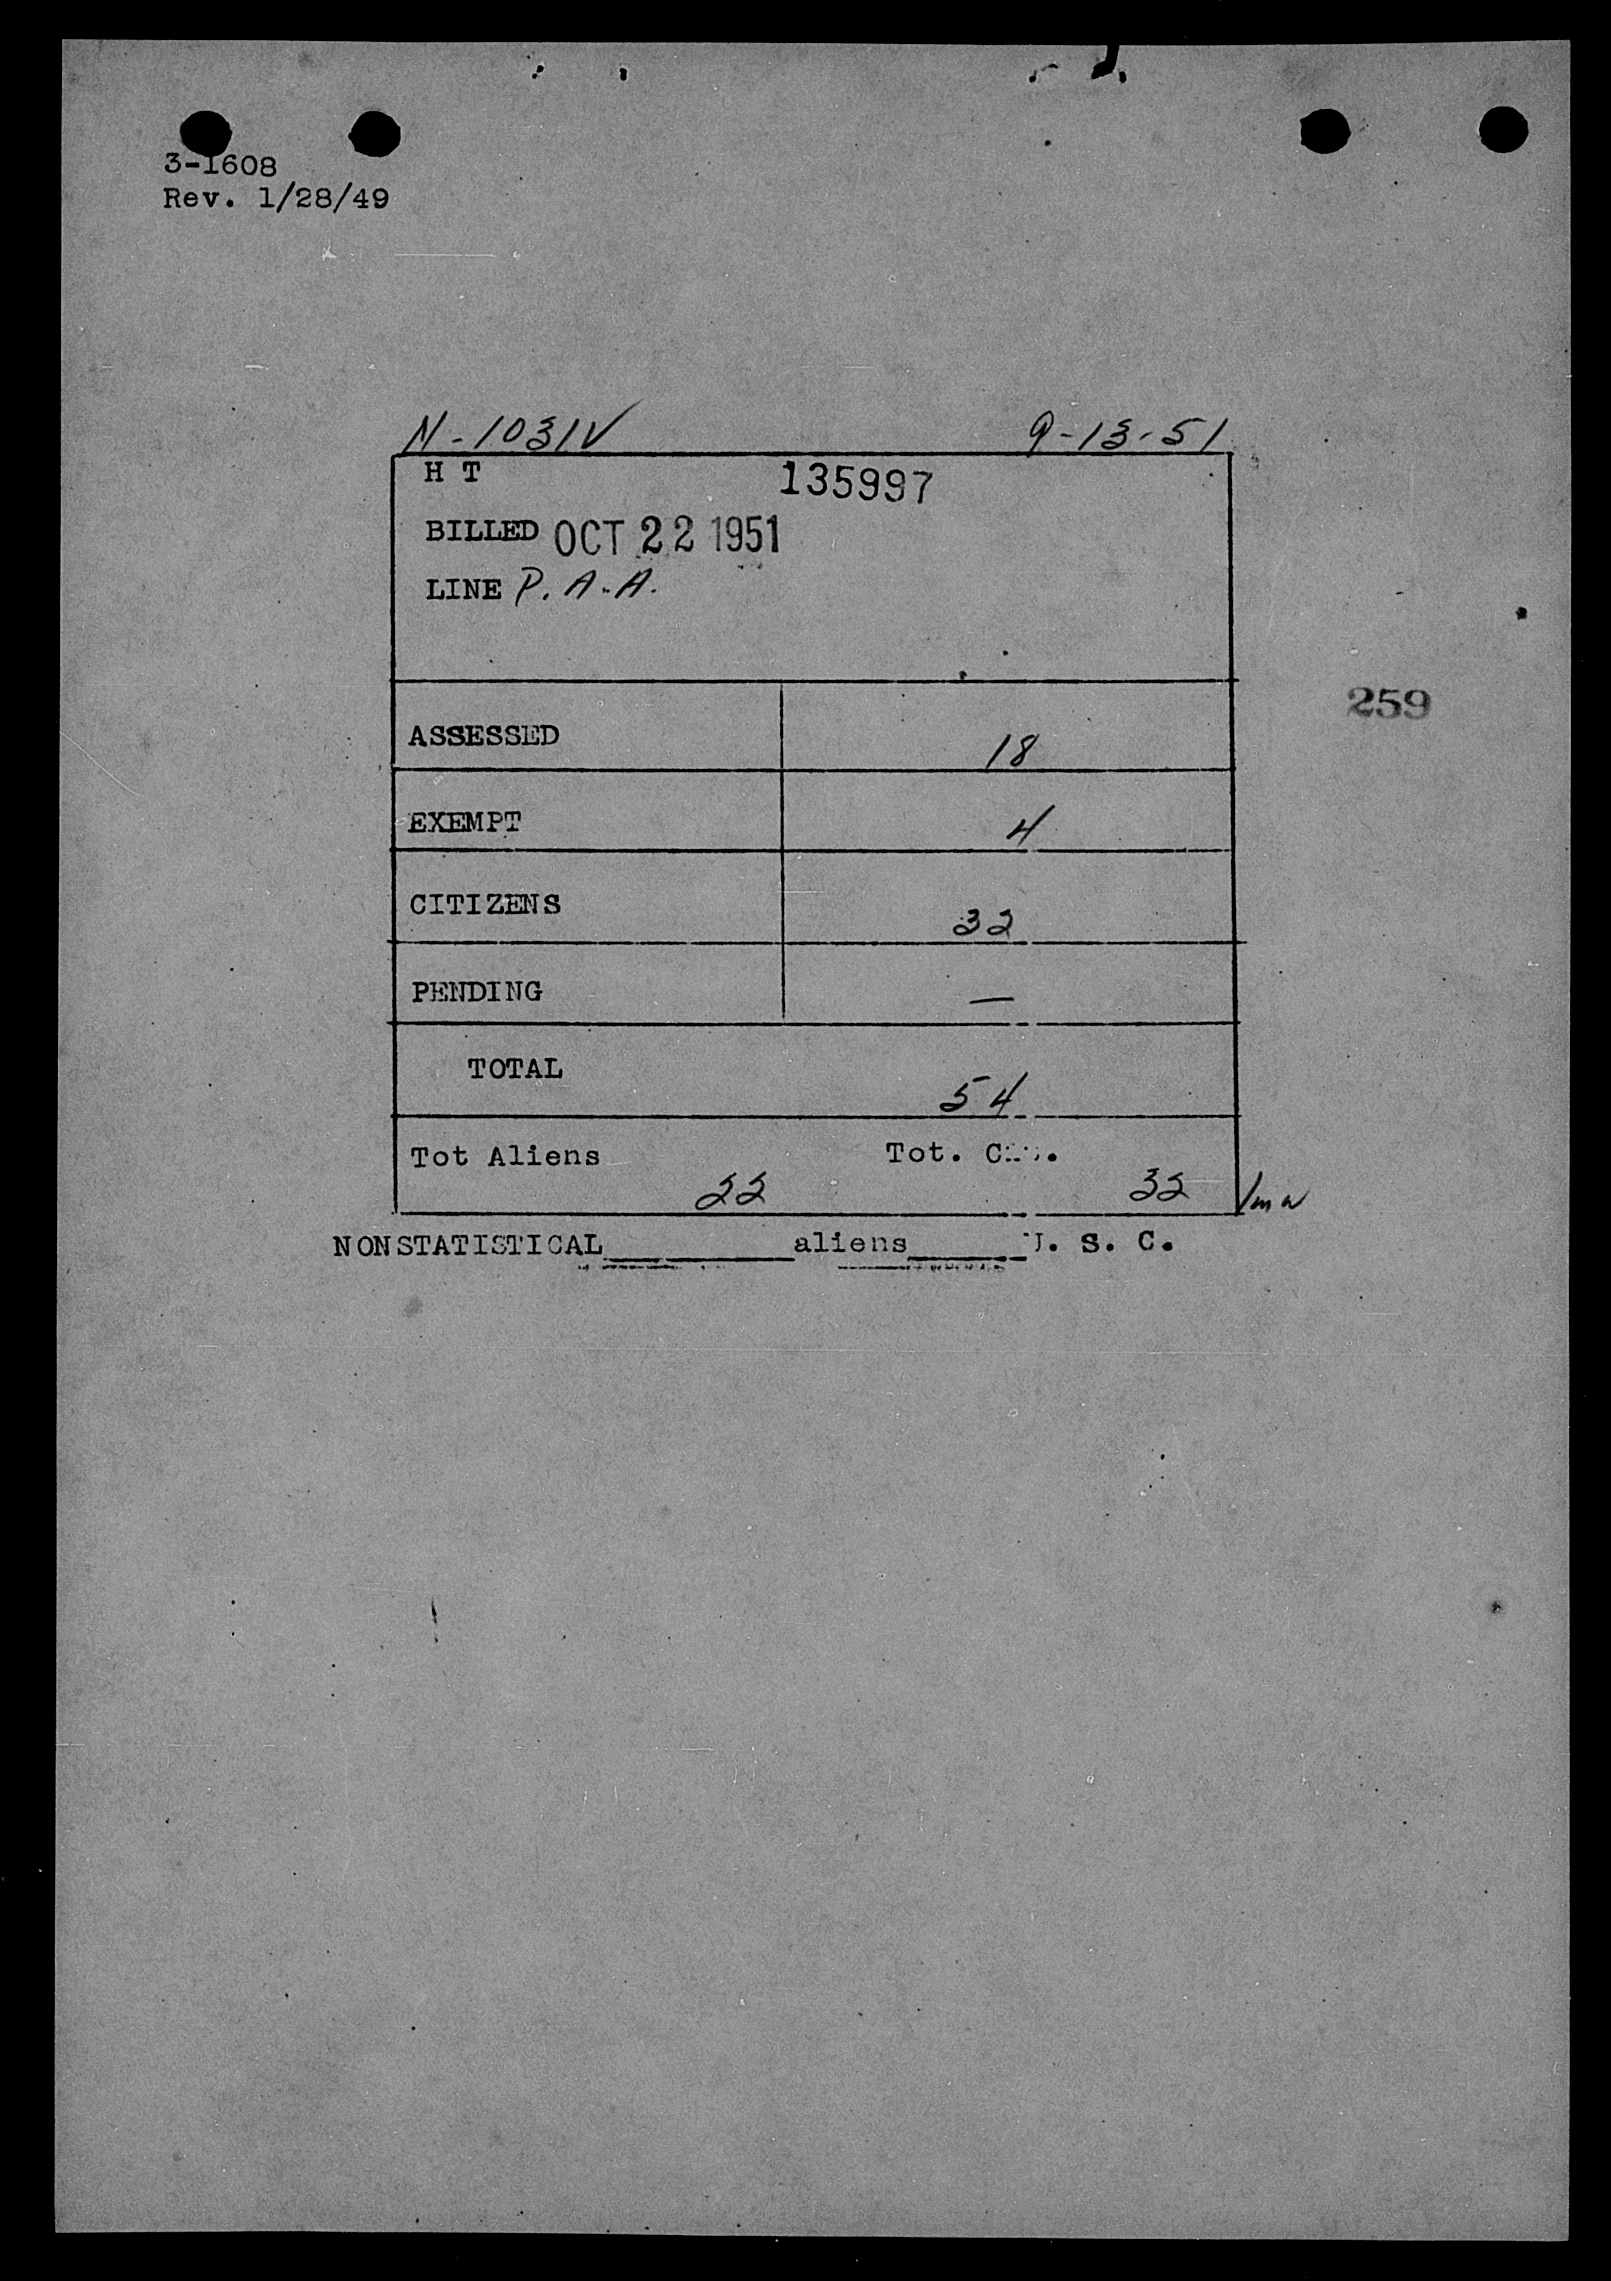 3-1608
Rev. 1/28/49
N-1031V 9-13-51
H T 135997
BILLED OCT 22 1951
LINE P.A.A.
259
ASSESSED 18
EXEMPT 4
CITIZENS 32
PENDING —
TOTAL 54
Tot Aliens Tot.
22 32
NONSTATISTICAL______aliens______U. S. C.